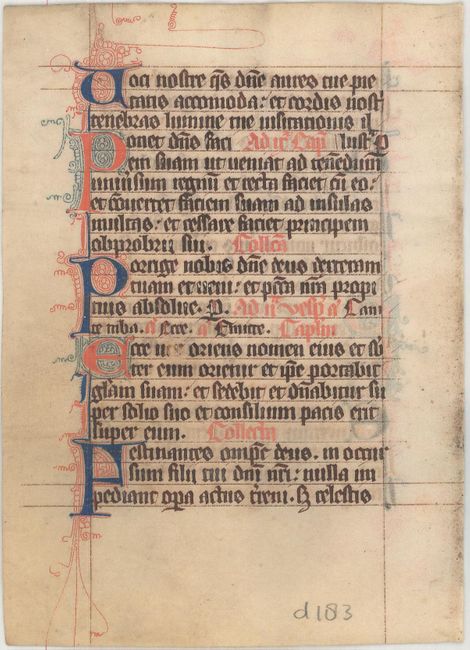 Voci nostre q̄s dn̄e aures tue pie
tatis accomoda: et cordis nost̄
tenebras lumine tue visitationis il
Ponet dn̄s faci Ad
em suam ut veniat ad tenendum
universum regnū et recta faciet cū eo:
et cōvertet faciem suam ad insulas
multas: et cessare faciet principem
obprobrii sui. Collcā
Porrige nobis dn̄e deus dexteram
tuam et veni: et pctā nr̄a propi
tius absolve. Ad Vesp̄ Cani
te tuba. a Ecce. a Emitte. Caplm̄
Ecce oriens nomen eius et sb̄
ter eum orietur et ip̄e portabit
glām suam: et sedebit et dn̄abitur su
per solio suo et consilium pacis erit
super eum. Collecta
Festinantes omp̄e deus. in occur
sum filii tui dn̄i nr̄i: nulla im
pediant op̄a actus t̄reni. s; celestis
d 183